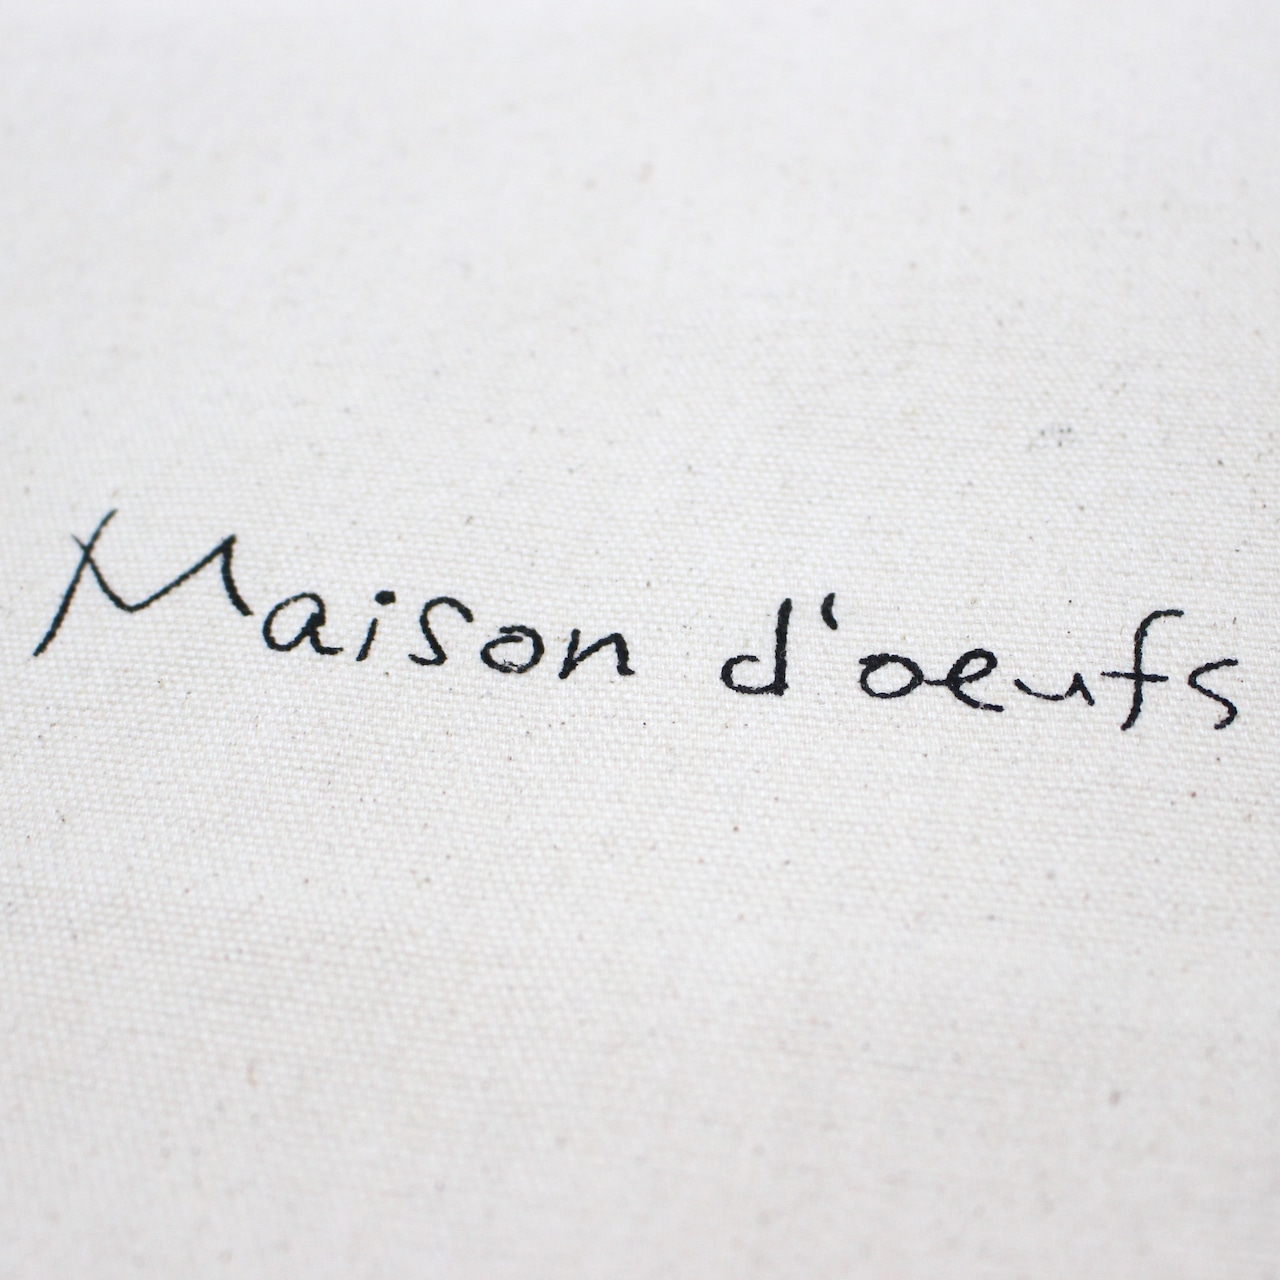 Maison d'oeufs